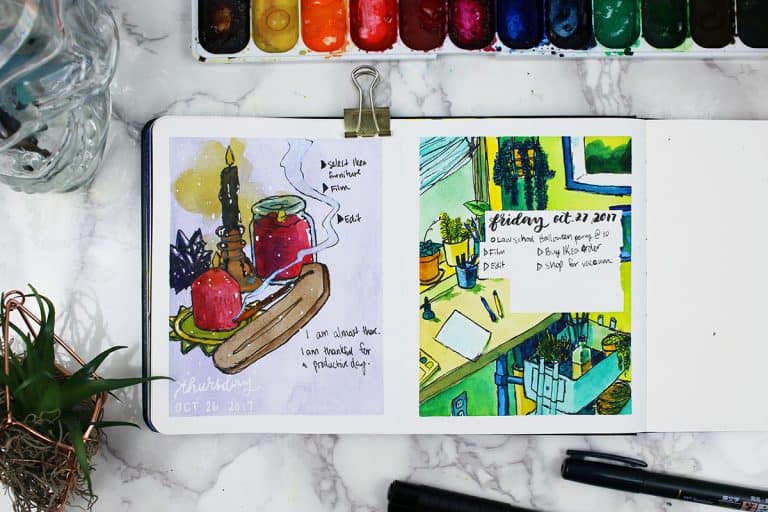 Select Ikea
furniture
Film
Edit
I am almost there.
I am thankful for
a productive day.
Thursday
OCT 26 2017
friday oct. 27, 2017
Law school Halloween party @ 10
Film
Buy IKea order
Edit
shop for vacuum